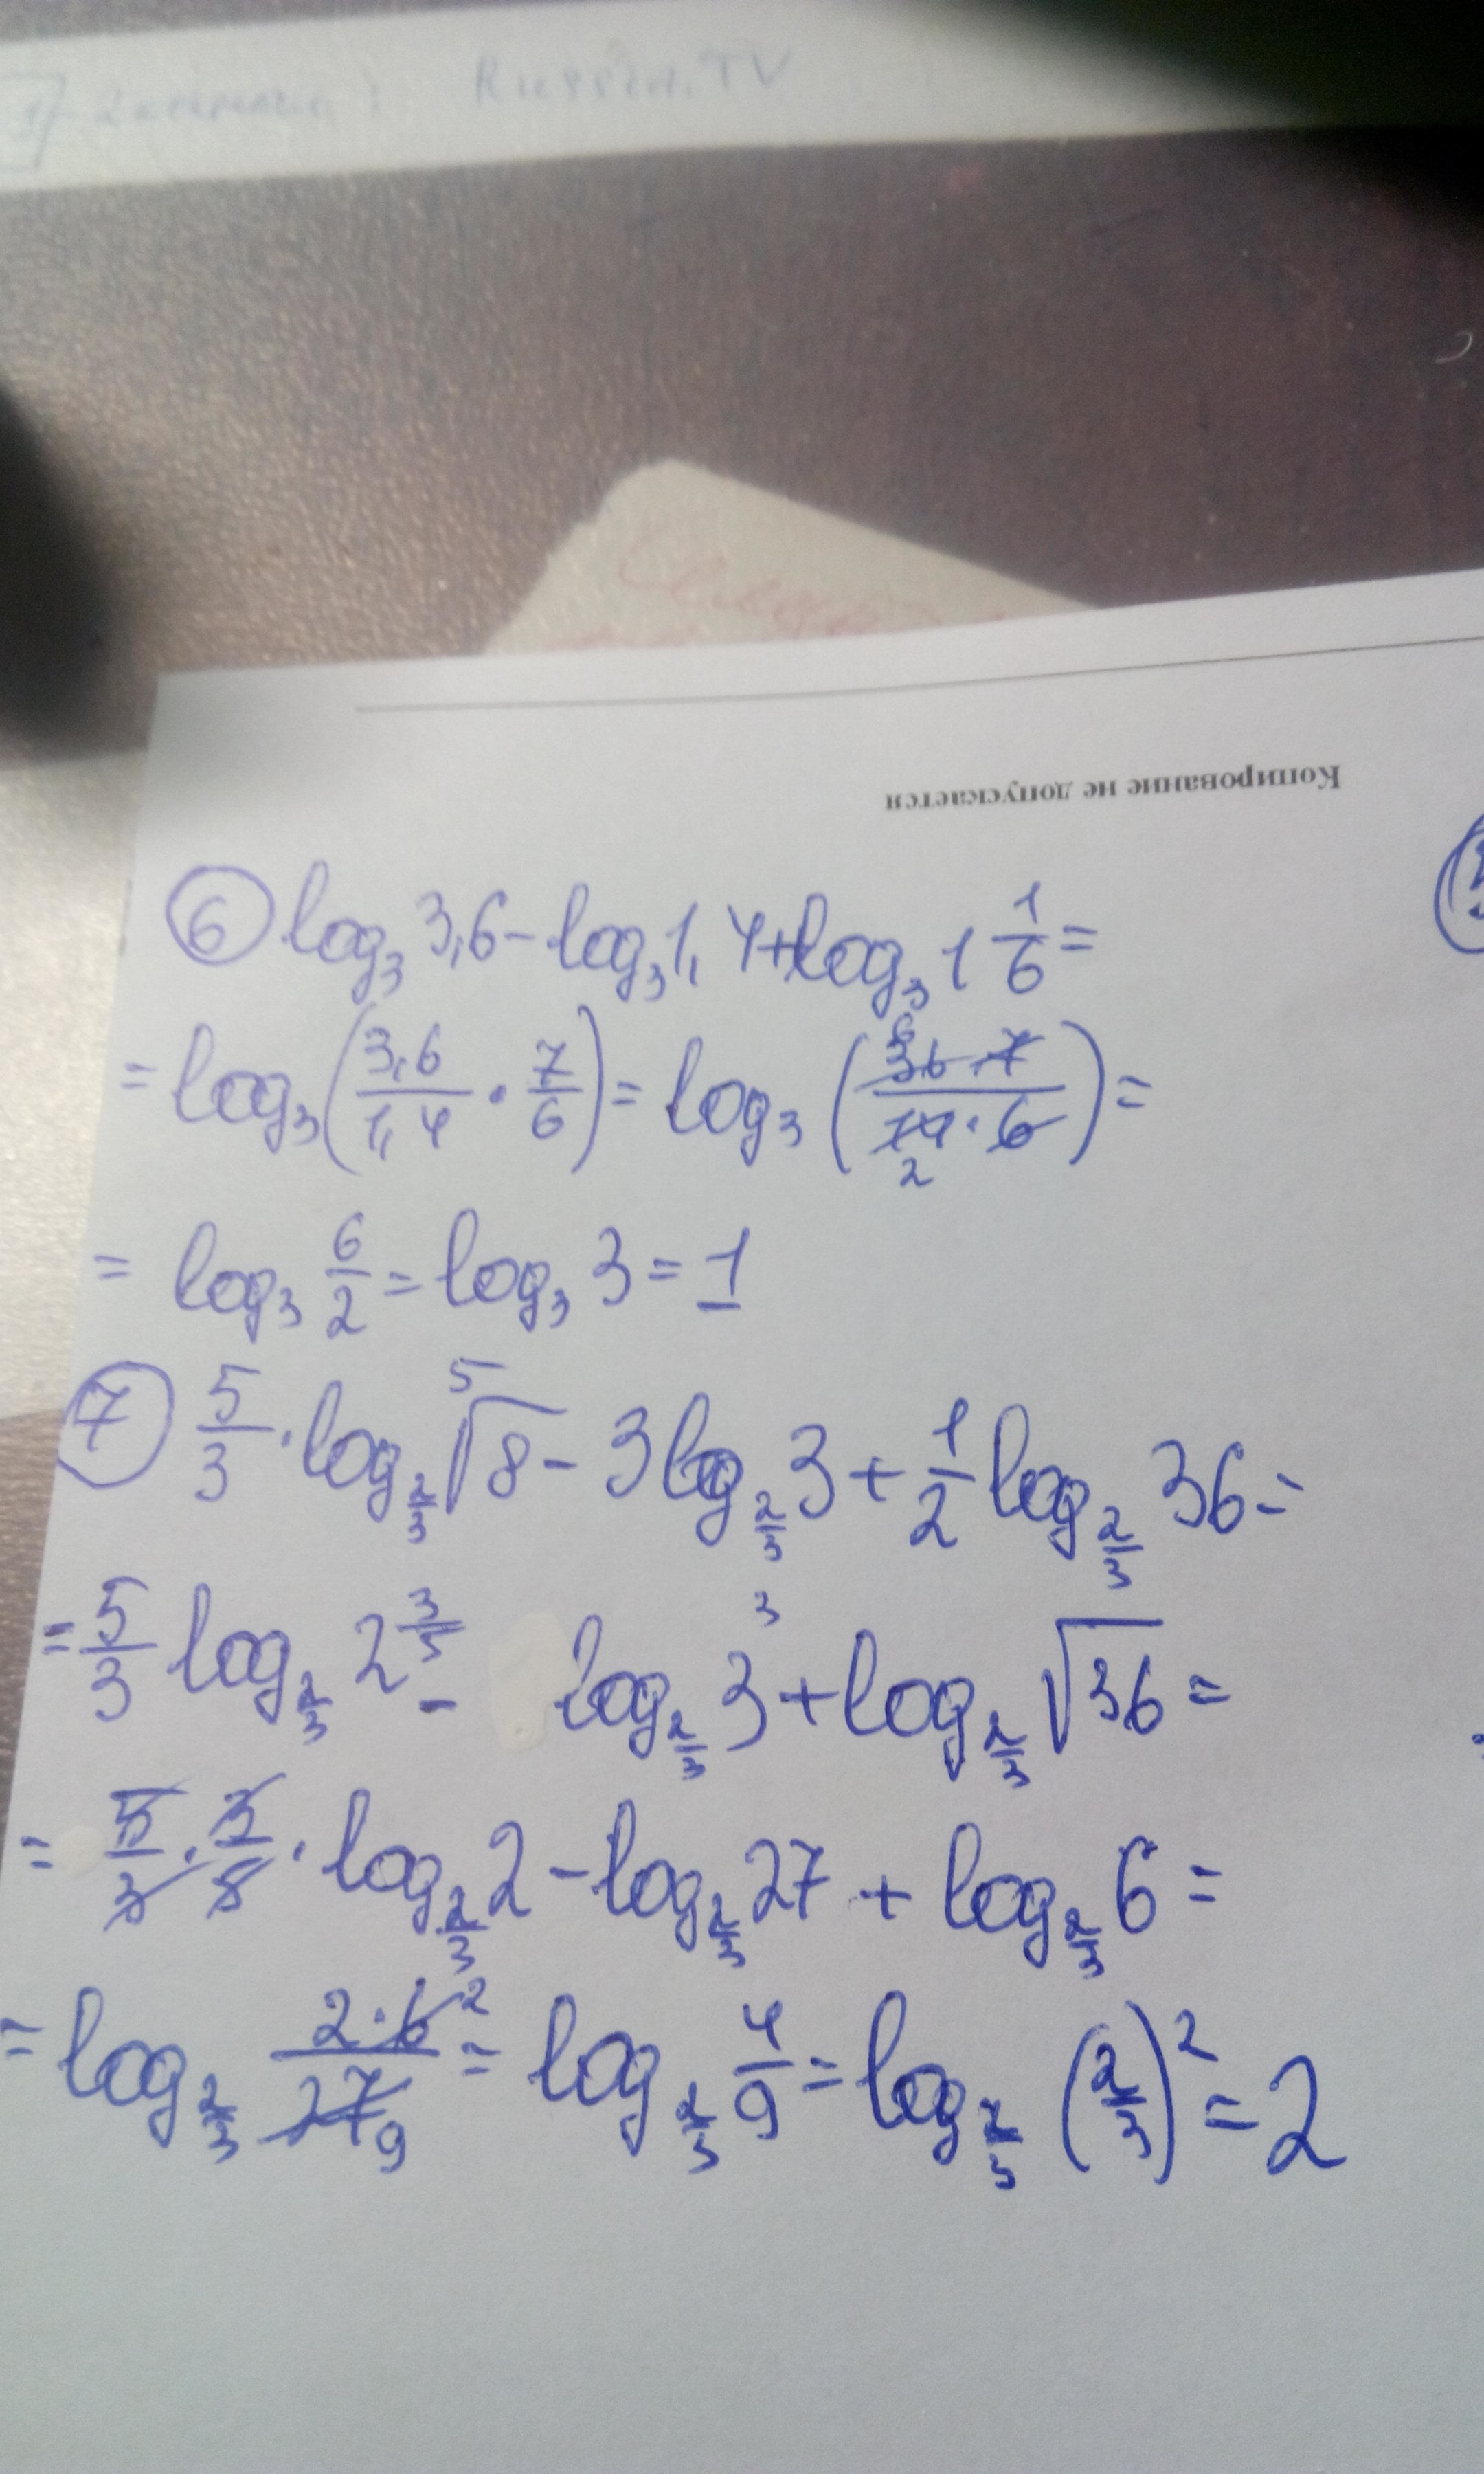 Russia.TV
Копирование не допускается
6 log₃ 3,6 - log₃ 1,4 + log₃ 1 1/6 =
= log₃ (3,6/1,4 · 7/6) = log₃ (36·7/14·6) =
6
2
= log₃ 6/2 = log₃ 3 = 1
7 5/3 · log_{2/3} ⁵√8 - 3 log_{2/3} 3 + 1/2 log_{2/3} 36 =
= 5/3 log_{2/3} 2^{3/5} - log_{2/3} 3³ + log_{2/3} √36 =
= 5/3 · 3/5 · log_{2/3} 2 - log_{2/3} 27 + log_{2/3} 6 =
= log_{2/3} 2·6/27 = log_{2/3} 4/9 = log_{2/3} (2/3)² = 2
2
9